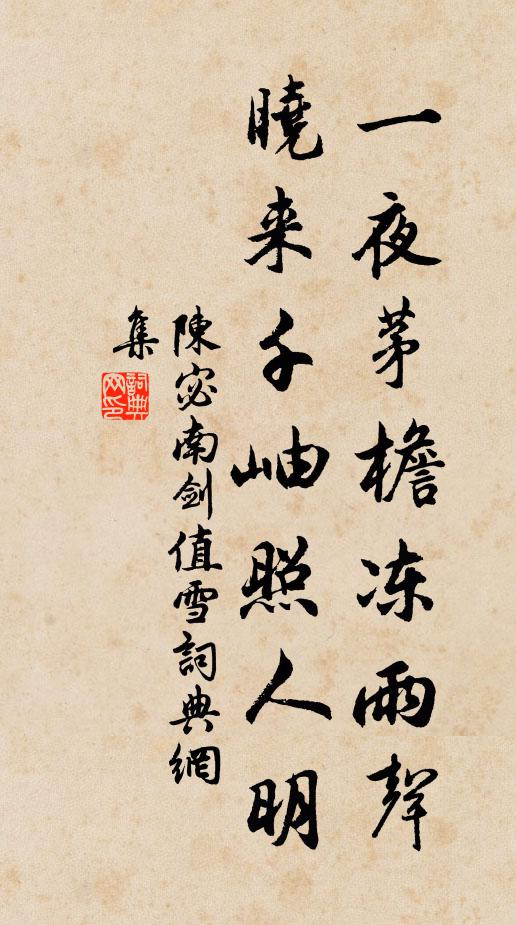 一夜茅檐冻雨聲
曉来千岫照人明
陳宓南劍值雪詞典網
集
詞典网印